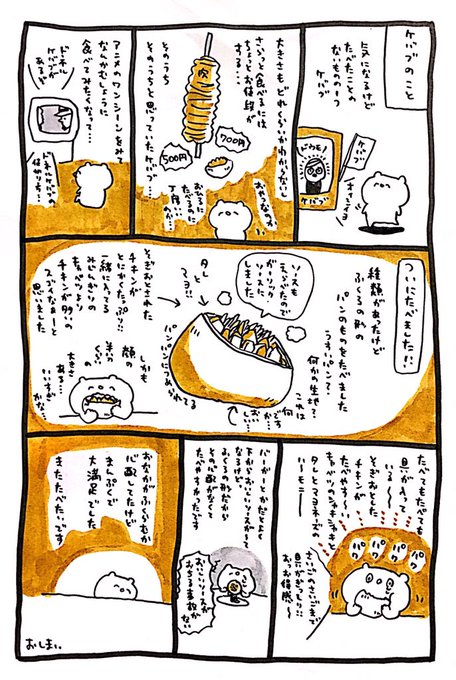 ケバブのこと
気になるけど
たべたことの
ないもの…の1つ
ケバブ
ケバブ
ドウモ!
ケバブ
大きさもどれくらいかわからないし
さらっと食べるには
ちょっとお値段が
する…
肉
700円
500円
おやつなのか
おひるに
たべるのに
丁度いいか…
そのうち
そのうちと思っていたケバブ…
アニメのワンシーンをみて
なんかむしょうに
食べてみたくなって…
ドネル
ケバブが
ある…
ドネルケバブの
仕組り方…
ついにたべました!!
種類があったけど
ふくろの形の
パンのものをたべました
うすいパンして…
何かの生地?
これは
何
ですか…
おいしい…
ソースも
えらべたので
ガーリック
ソースに
しました
タレ
と
マヨ!!
パンパンにつめられてる
そぎおとされた
チキンが
とにかくたっぷり!!
一緒に入ってる
みじんぎりの
キャベツより
チキンが多くて
スゴいなぁーと
思いました
しかも
顔の
半分
くらい
の
大きさ
ある…
いいすぎ
かな?
たべてもたべても
具が入って
いる〜
そぎおとした
チキンが
たべやすく〜
キャベツのシャキシャキ
タレとマヨネーズ
ハーモニー
パク
パク
パク
パク
さいごのさいごまで
具がぎっしり!!
おっお得感〜
バーガーとかだとよく
下からおいしいソースが〜て
なるけど
ふくろの形だから
その心配がなくて
たべやすかったです
おいしいソースが
おちる事故が
ない
おなかがふくらむか
心配してたけど
まんぷくで
大満足でした
またたべたいです
おしまい